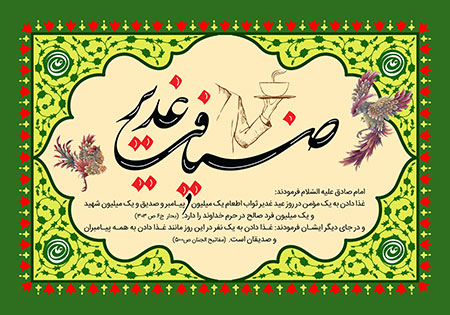 ضیافت غدیر
امام صادق علیه السلام فرمودند:
غذا دادن به یک مؤمن در روز عید غدیر ثواب اطعام یک میلیون پیامبر و صدیق و یک میلیون شهید
و یک میلیون فرد صالح در حرم خداوند را دارد. (بحار ج۶ ص ۳۰۳)
و در جای دیگر ایشان فرمودند: غذا دادن به یک نفر در این روز مانند غذا دادن به همه پیامبران
و صدیقان است. (مفاتیح الجنان ص۵۰۰)